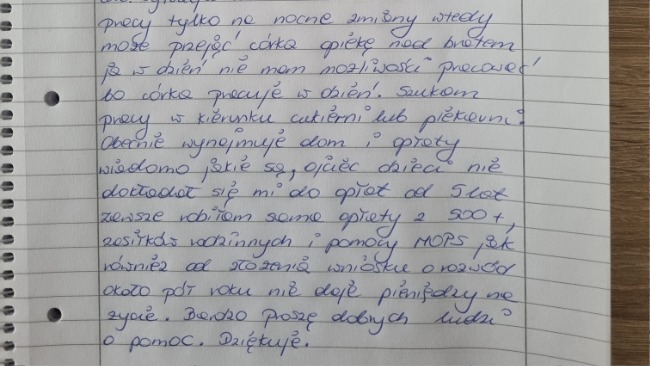 pracy tylko na nocne zmiany wtedy
może przejąć córka opiekę nad bratem
ja w dzień nie mam możliwości pracować
bo córka pracuje w dzień. Szukam
pracy w kierunku cukierni lub piekarni.
Obecnie wynajmuje dom i opłaty
wiadomo jakie są, ojciec dzieci nie
dokładał się mi do opłat od 5 lat
zawsze robiłam sama opłaty z 500+,
zasiłków rodzinnych i pomocy MOPS, jak
również od złożenia wniosku o rozwód
około pół roku nie daje pieniędzy na
życie. Bardzo proszę dobrych ludzi
o pomoc. Dziękuje.